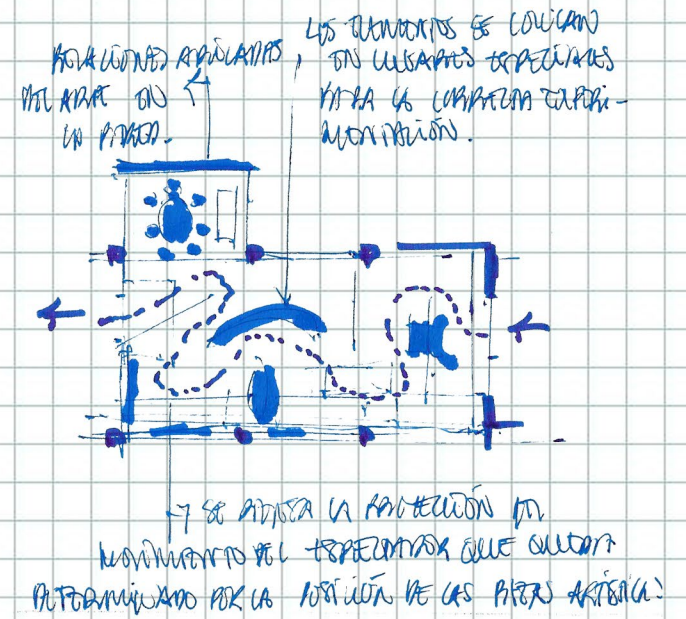 RELACIONES APLICADAS
DEL ARTE EN
LA PARED.
LOS ELEMENTOS SE COLOCAN
EN LUGARES ESPECIALES
PARA LA CORRECTA EXPERI-
MENTACIÓN.
SE PIENSA LA PROYECCIÓN DEL
MOVIMIENTO DEL ESPECTADOR QUE QUEDA
DETERMINADO POR LA POSICIÓN DE LAS PIEZAS